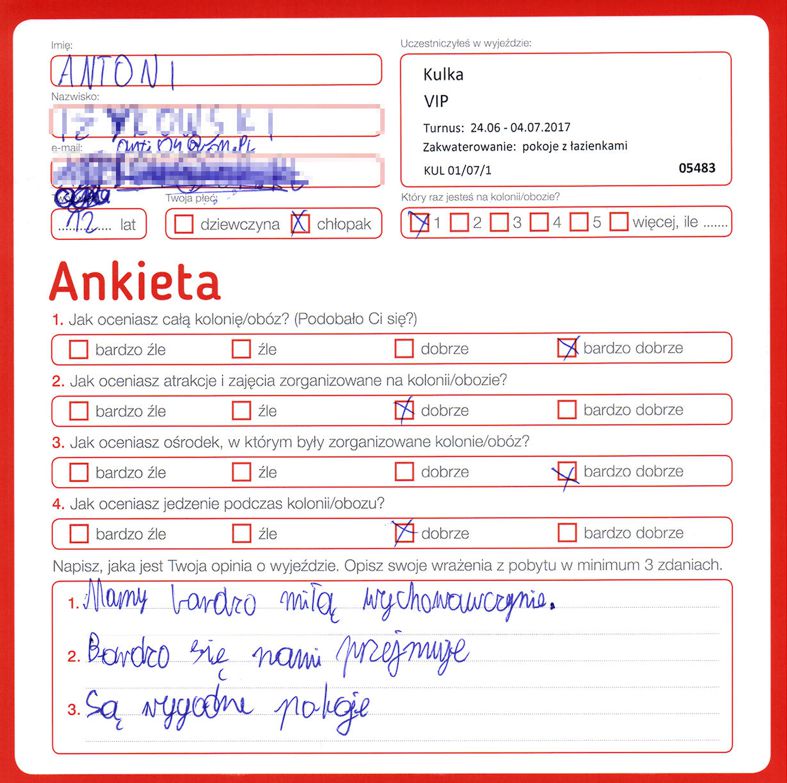 Imię:
ANTONI
Uczestniczyłeś w wyjeździe:
Kulka
VIP
Turnus: 24.06 - 04.07.2017
Zakwaterowanie: pokoje z łazienkami
KUL 01/07/1 05483
Nazwisko:
e-mail:
12 lat
Twoja płeć:
dziewczyna X chłopak
Który raz jesteś na kolonii/obozie?
X 1 2 3 4 5 więcej, ile .......
Ankieta
1. Jak oceniasz całą kolonię/obóz? (Podobało Ci się?)
bardzo źle źle dobrze X bardzo dobrze
2. Jak oceniasz atrakcje i zajęcia zorganizowane na kolonii/obozie?
bardzo źle źle X dobrze bardzo dobrze
3. Jak oceniasz ośrodek, w którym były zorganizowane kolonie/obóz?
bardzo źle źle dobrze X bardzo dobrze
4. Jak oceniasz jedzenie podczas kolonii/obozu?
bardzo źle źle X dobrze bardzo dobrze
Napisz, jaka jest Twoja opinia o wyjeździe. Opisz swoje wrażenia z pobytu w minimum 3 zdaniach.
1. Mamy bardzo miłą wychowawczynie.
2. Bardzo się nami przejmuje
3. Są wygodne pokoje